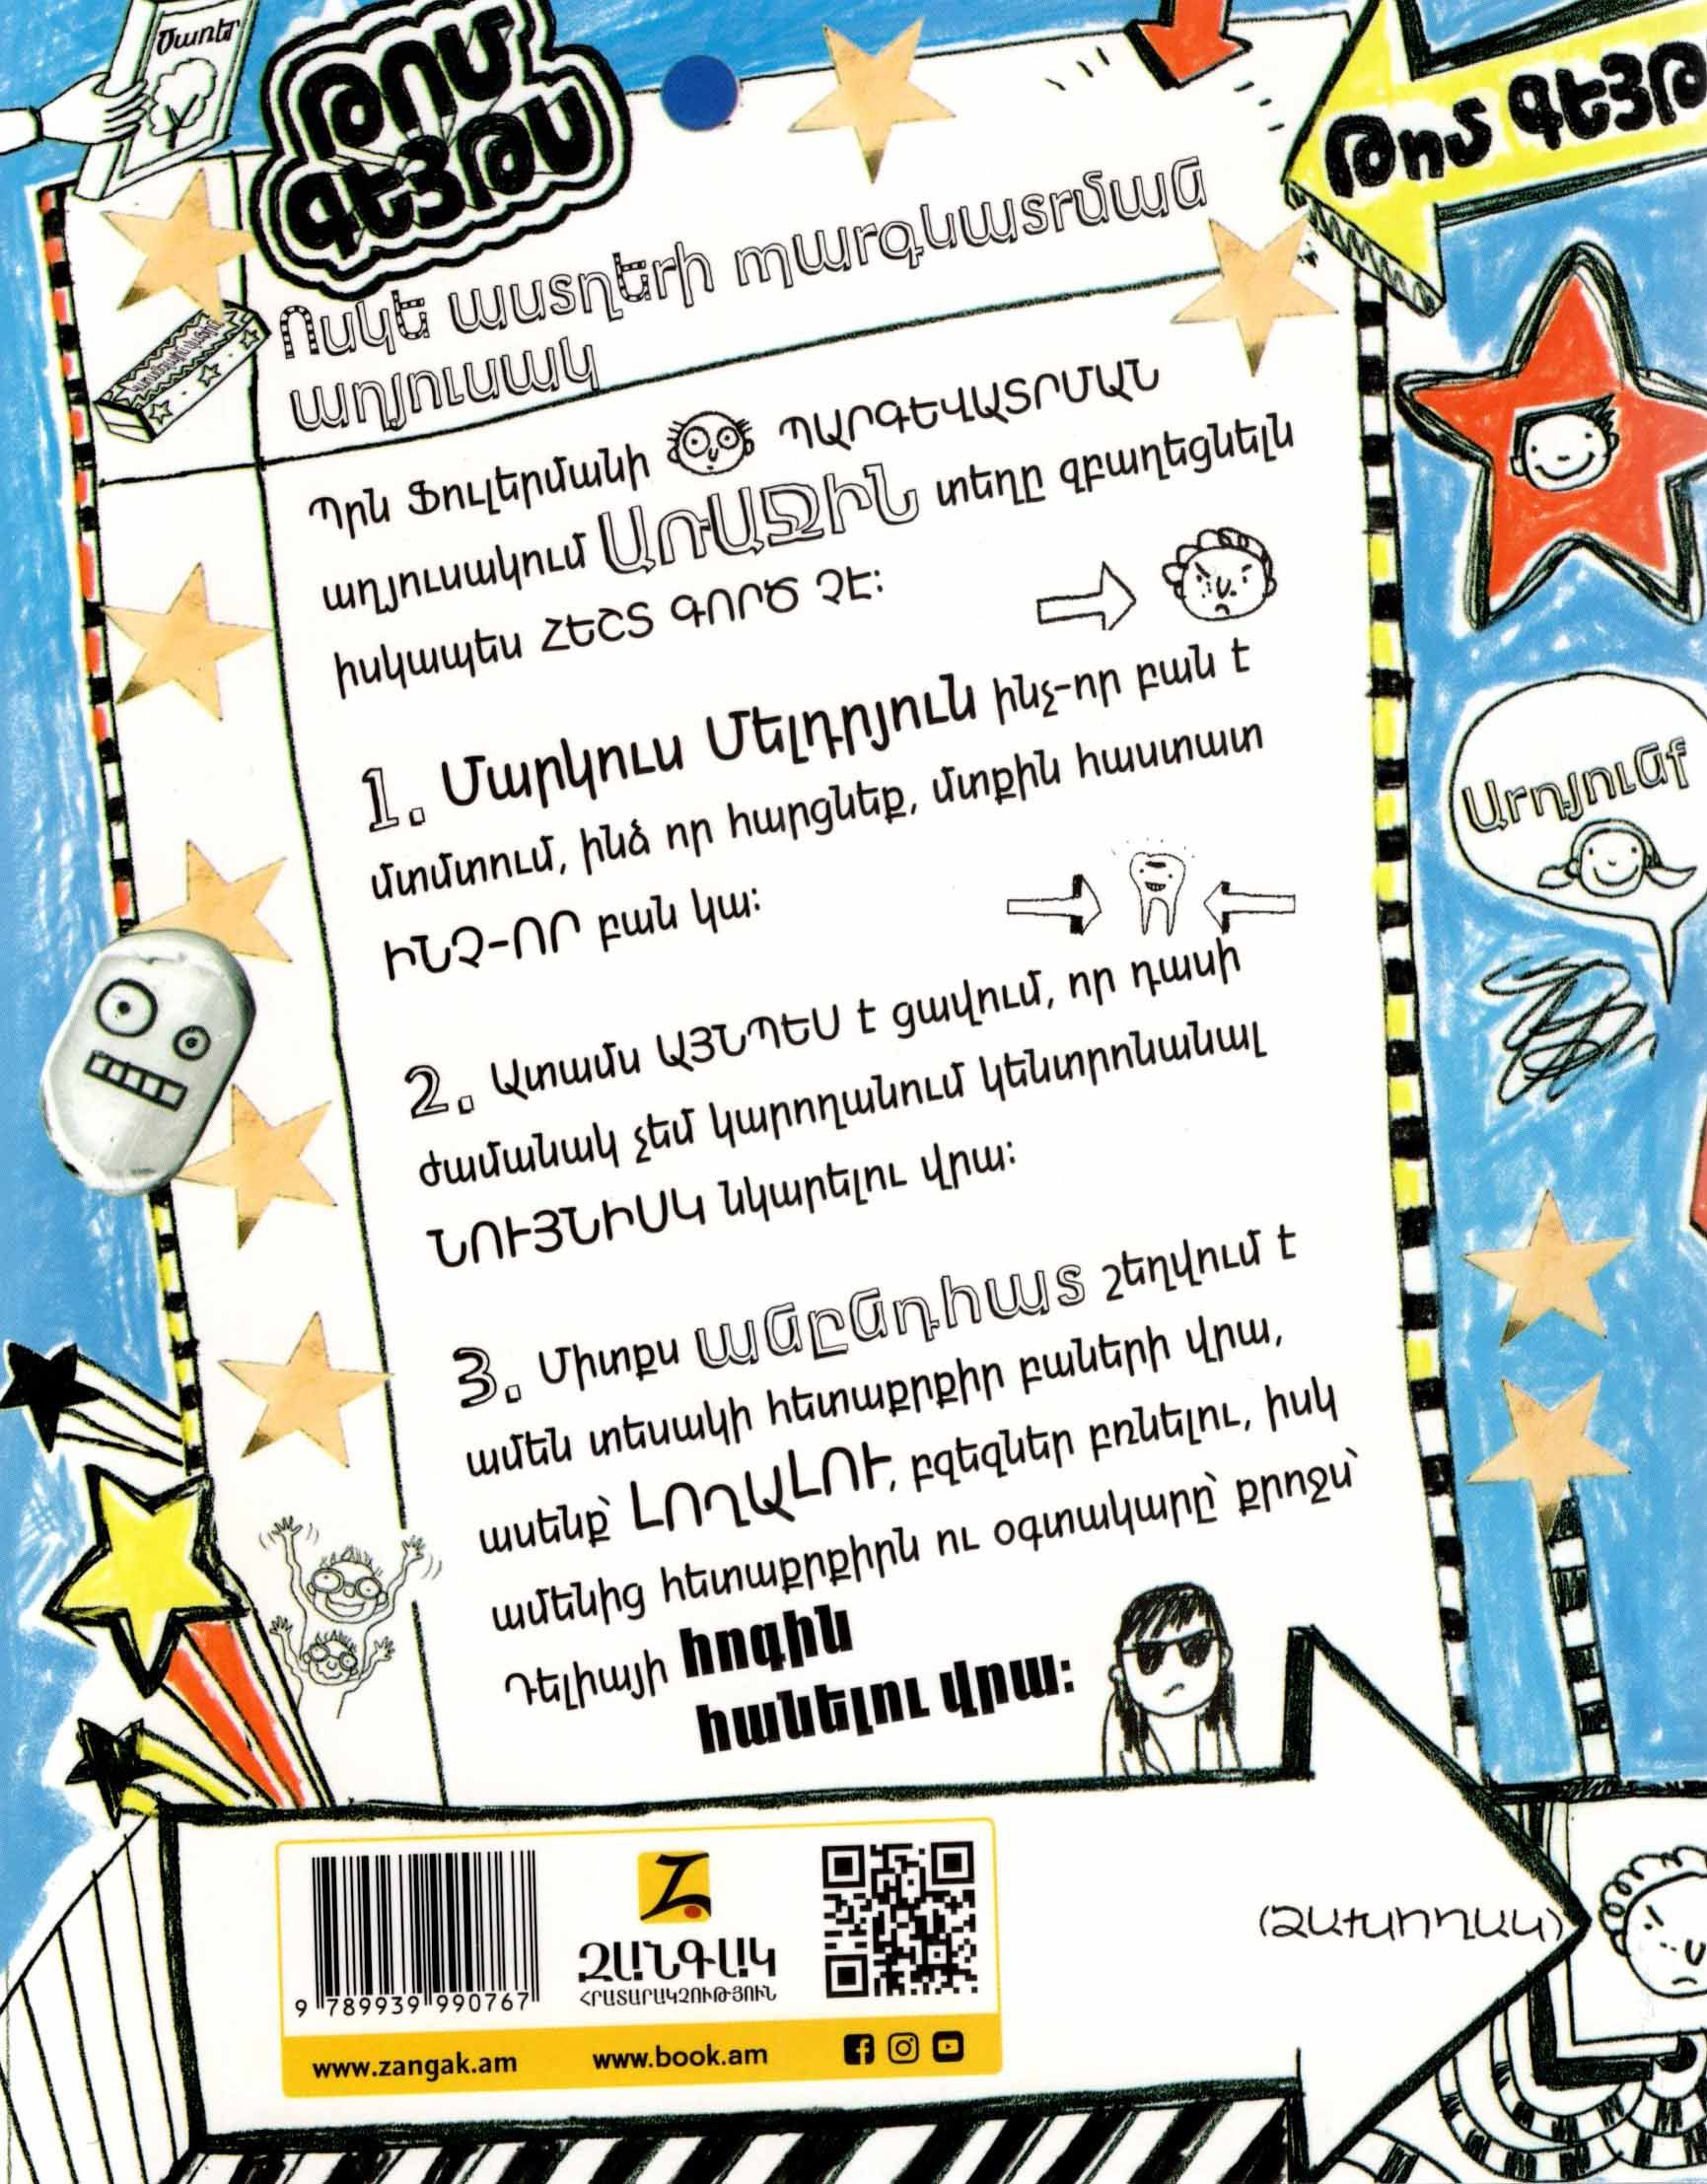 Ծառեր
ԹՈՄ
ԳԵՅԹՍ
Թոմ ԳԵՅԹ
Ոսկե աստղերի պարգևատրման
աղյուսակ
Պրն Ֆուլերմանի ՊԱՐԳԵՎԱՏՐՄԱՆ
աղյուսակում ԱՌԱՋԻՆ տեղը զբաղեցնելն
իսկապես ՀԵՇՏ ԳՈՐԾ ՉԷ:
1. Մարկուս Մելդրյուն ինչ-որ բան է
մտմտում, ինձ որ հարցնեք, մտքին հաստատ
ԻՆՉ-ՈՐ բան կա:
Արդյունք
2. Ատամս ԱՅՆՊԵՍ է ցավում, որ դասի
ժամանակ չեմ կարողանում կենտրոնանալ
ՆՈՒՅՆԻՍԿ նկարելու վրա:
3. Միտքս անընդհատ շեղվում է
ամեն տեսակի հետաքրքիր բաների վրա,
ասենք՝ ԼՈՂԱԼՈՒ, բզեզներ բռնելու, իսկ
ամենից հետաքրքիրն ու օգտակարը՝ քրոջս՝
Դելիայի հոգին
հանելու վրա:
(ՁԱԽՈՂԱԿ)
9 789939 990767
ԶԱՆԳԱԿ
ՀՐԱՏԱՐԱԿՉՈՒԹՅՈՒՆ
www.zangak.am www.book.am